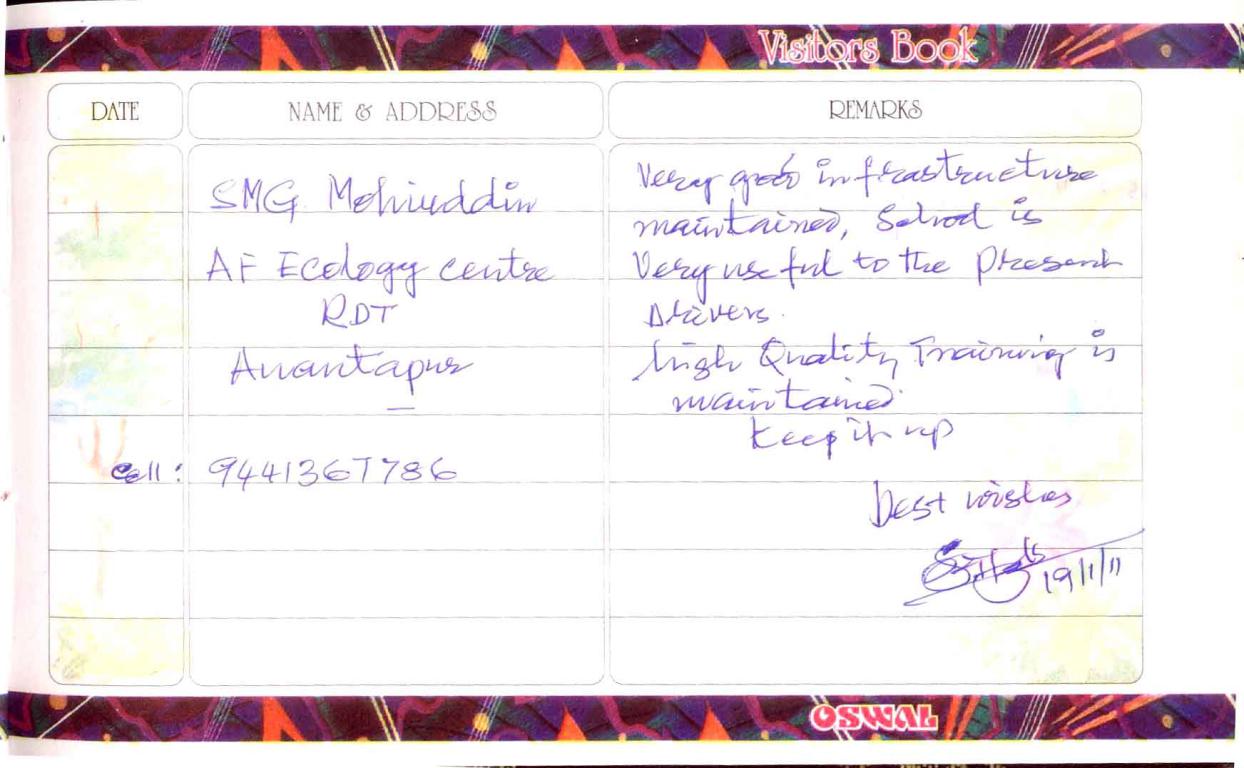 Visitors Book
DATE
NAME & ADDRESS
REMARKS
SMG. Mohiuddin
AF Ecology centre
RDT
Anantapur
Cell: 9441367786
Very good infrastructure
maintained, School is
Very useful to the Present
Drivers.
high Quality Training is
maintained.
Keep it up
Best wishes
19/1/11
OSWAL